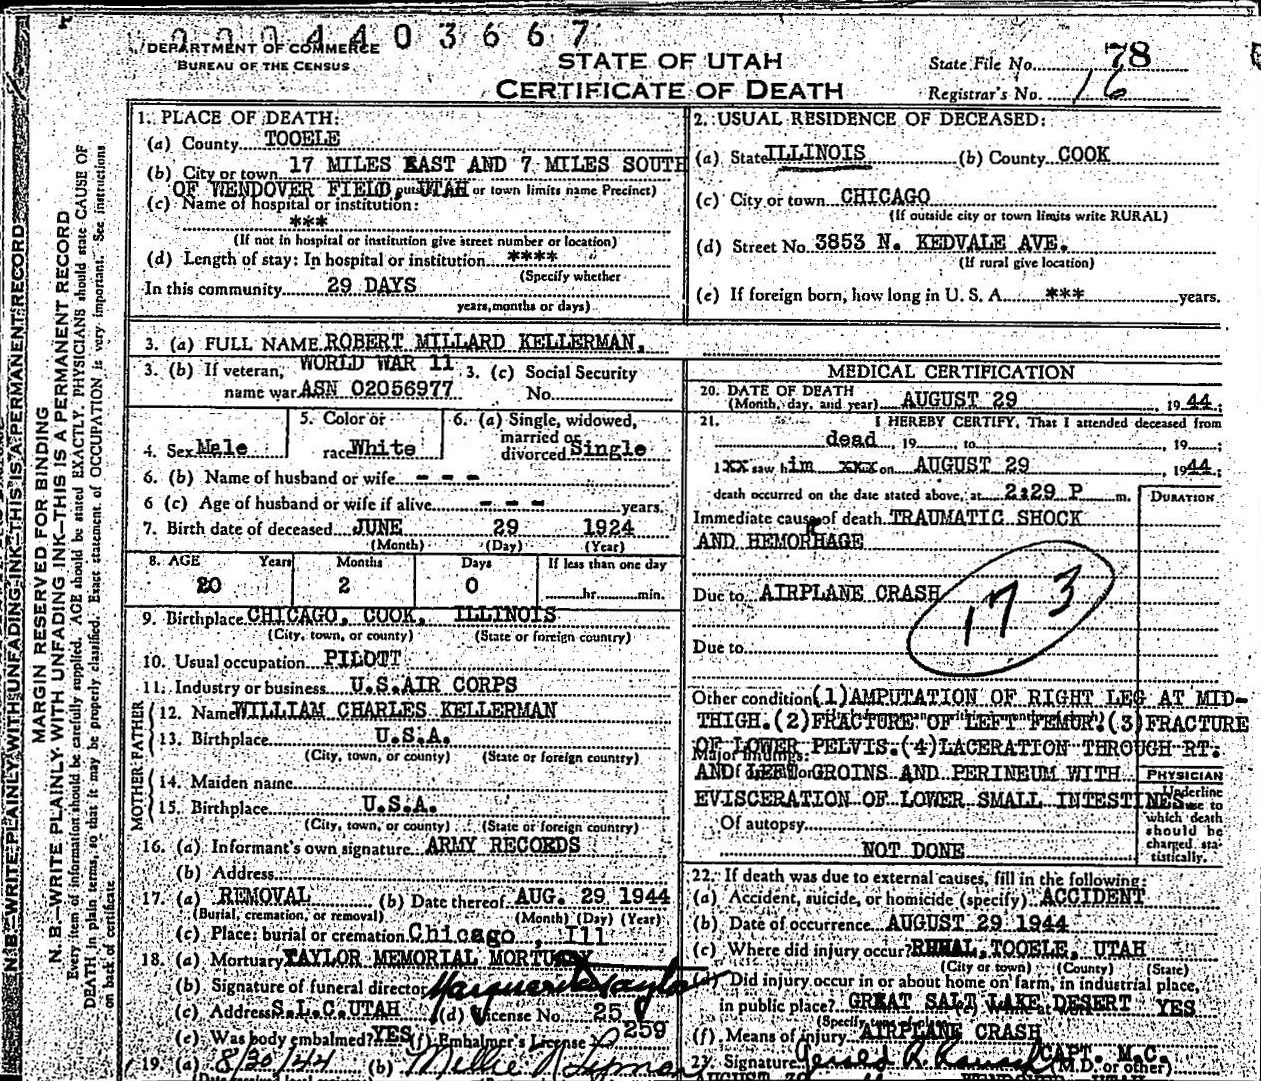 0004403667
DEPARTMENT OF COMMERCE
BUREAU OF THE CENSUS
STATE OF UTAH
CERTIFICATE OF DEATH
State File No. 78
Registrar's No. 16
MARGIN RESERVED FOR BINDING
N. B.—WRITE PLAINLY WITH UNFADING INK—THIS IS A PERMANENT RECORD
Every item of information should be carefully supplied. AGE should be stated EXACTLY. PHYSICIANS should state CAUSE OF
DEATH in plain terms, so that it may be properly classified. Exact statement of OCCUPATION is very important. See instructions
on back of certificate.
1. PLACE OF DEATH:
(a) County TOOELE
(b) City or town 17 MILES EAST AND 7 MILES SOUTH
OF WENDOVER FIELD, UTAH or town limits name Precinct)
(c) Name of hospital or institution:
***
(If not in hospital or institution give street number or location)
(d) Length of stay: In hospital or institution ****
(Specify whether
In this community 29 DAYS
years, months or days)
2. USUAL RESIDENCE OF DECEASED:
(a) State ILLINOIS (b) County COOK
(c) City or town CHICAGO
(If outside city or town limits write RURAL)
(d) Street No. 3853 N. KEDVALE AVE.
(If rural give location)
(e) If foreign born, how long in U. S. A. *** years.
3. (a) FULL NAME ROBERT MILLARD KELLERMAN,
3. (b) If veteran, name war WORLD WAR 11 ASN 02056977
3. (c) Social Security No.
4. Sex Male
5. Color or race White
6. (a) Single, widowed, married or divorced Single
6. (b) Name of husband or wife - - -
6 (c) Age of husband or wife if alive - - - years.
7. Birth date of deceased JUNE 29 1924
(Month) (Day) (Year)
8. AGE Years Months Days If less than one day
20 2 0 hr. min.
9. Birthplace CHICAGO, COOK, ILLINOIS
(City, town, or county) (State or foreign country)
10. Usual occupation PILOTT
11. Industry or business U.S.AIR CORPS
FATHER
12. Name WILLIAM CHARLES KELLERMAN
13. Birthplace U.S.A.
(City, town, or county) (State or foreign country)
MOTHER
14. Maiden name
15. Birthplace U.S.A.
(City, town, or county) (State or foreign country)
16. (a) Informant's own signature ARMY RECORDS
(b) Address
17. (a) REMOVAL (b) Date thereof AUG. 29 1944
(Burial, cremation, or removal) (Month) (Day) (Year)
(c) Place; burial or cremation Chicago, Ill
18. (a) Mortuary TAYLOR MEMORIAL MORTUARY
(b) Signature of funeral director Marguerite Taylor
(c) Address S.L.C.UTAH (d) License No. 25
(e) Was body embalmed? YES (f) Embalmer's License 259
19. (a) 8/30/44 (b) Millie
MEDICAL CERTIFICATION
20. DATE OF DEATH
(Month, day, and year) AUGUST 29, 1944;
21. I HEREBY CERTIFY, That I attended deceased from
dead, 19 to 19 ;
I xx saw him xxx on AUGUST 29, 1944;
death occurred on the date stated above, at 2:29 P m.
DURATION
Immediate cause of death TRAUMATIC SHOCK
AND HEMORRHAGE
Due to AIRPLANE CRASH
173
Due to
Other condition (1)AMPUTATION OF RIGHT LEG AT MID-
THIGH.(2)FRACTURE OF LEFT FEMUR.(3)FRACTURE
OF LOWER PELVIS.(4)LACERATION THROUGH RT.
Major findings:
AND LEFT GROINS AND PERINEUM WITH
EVISCERATION OF LOWER SMALL INTESTINES.
Of autopsy
NOT DONE
PHYSICIAN
Underline
cause to
which death
should be
charged sta-
tistically.
22. If death was due to external causes, fill in the following:
(a) Accident, suicide, or homicide (specify) ACCIDENT
(b) Date of occurrence AUGUST 29 1944
(c) Where did injury occur? RURAL, TOOELE, UTAH
(City or town) (County) (State)
Did injury occur in or about home on farm, in industrial place,
in public place? GREAT SALT LAKE DESERT YES
(Specify
(f) Means of injury AIRPLANE CRASH
23. Signature CAPT. M.C.
(M.D. or other)